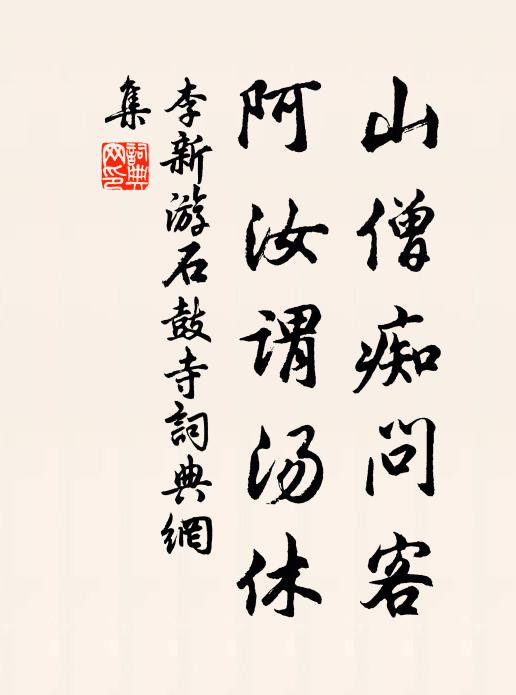 山僧痴问客
阿汝谓汤休
李新游石鼓寺詞典網
集
詞典網印